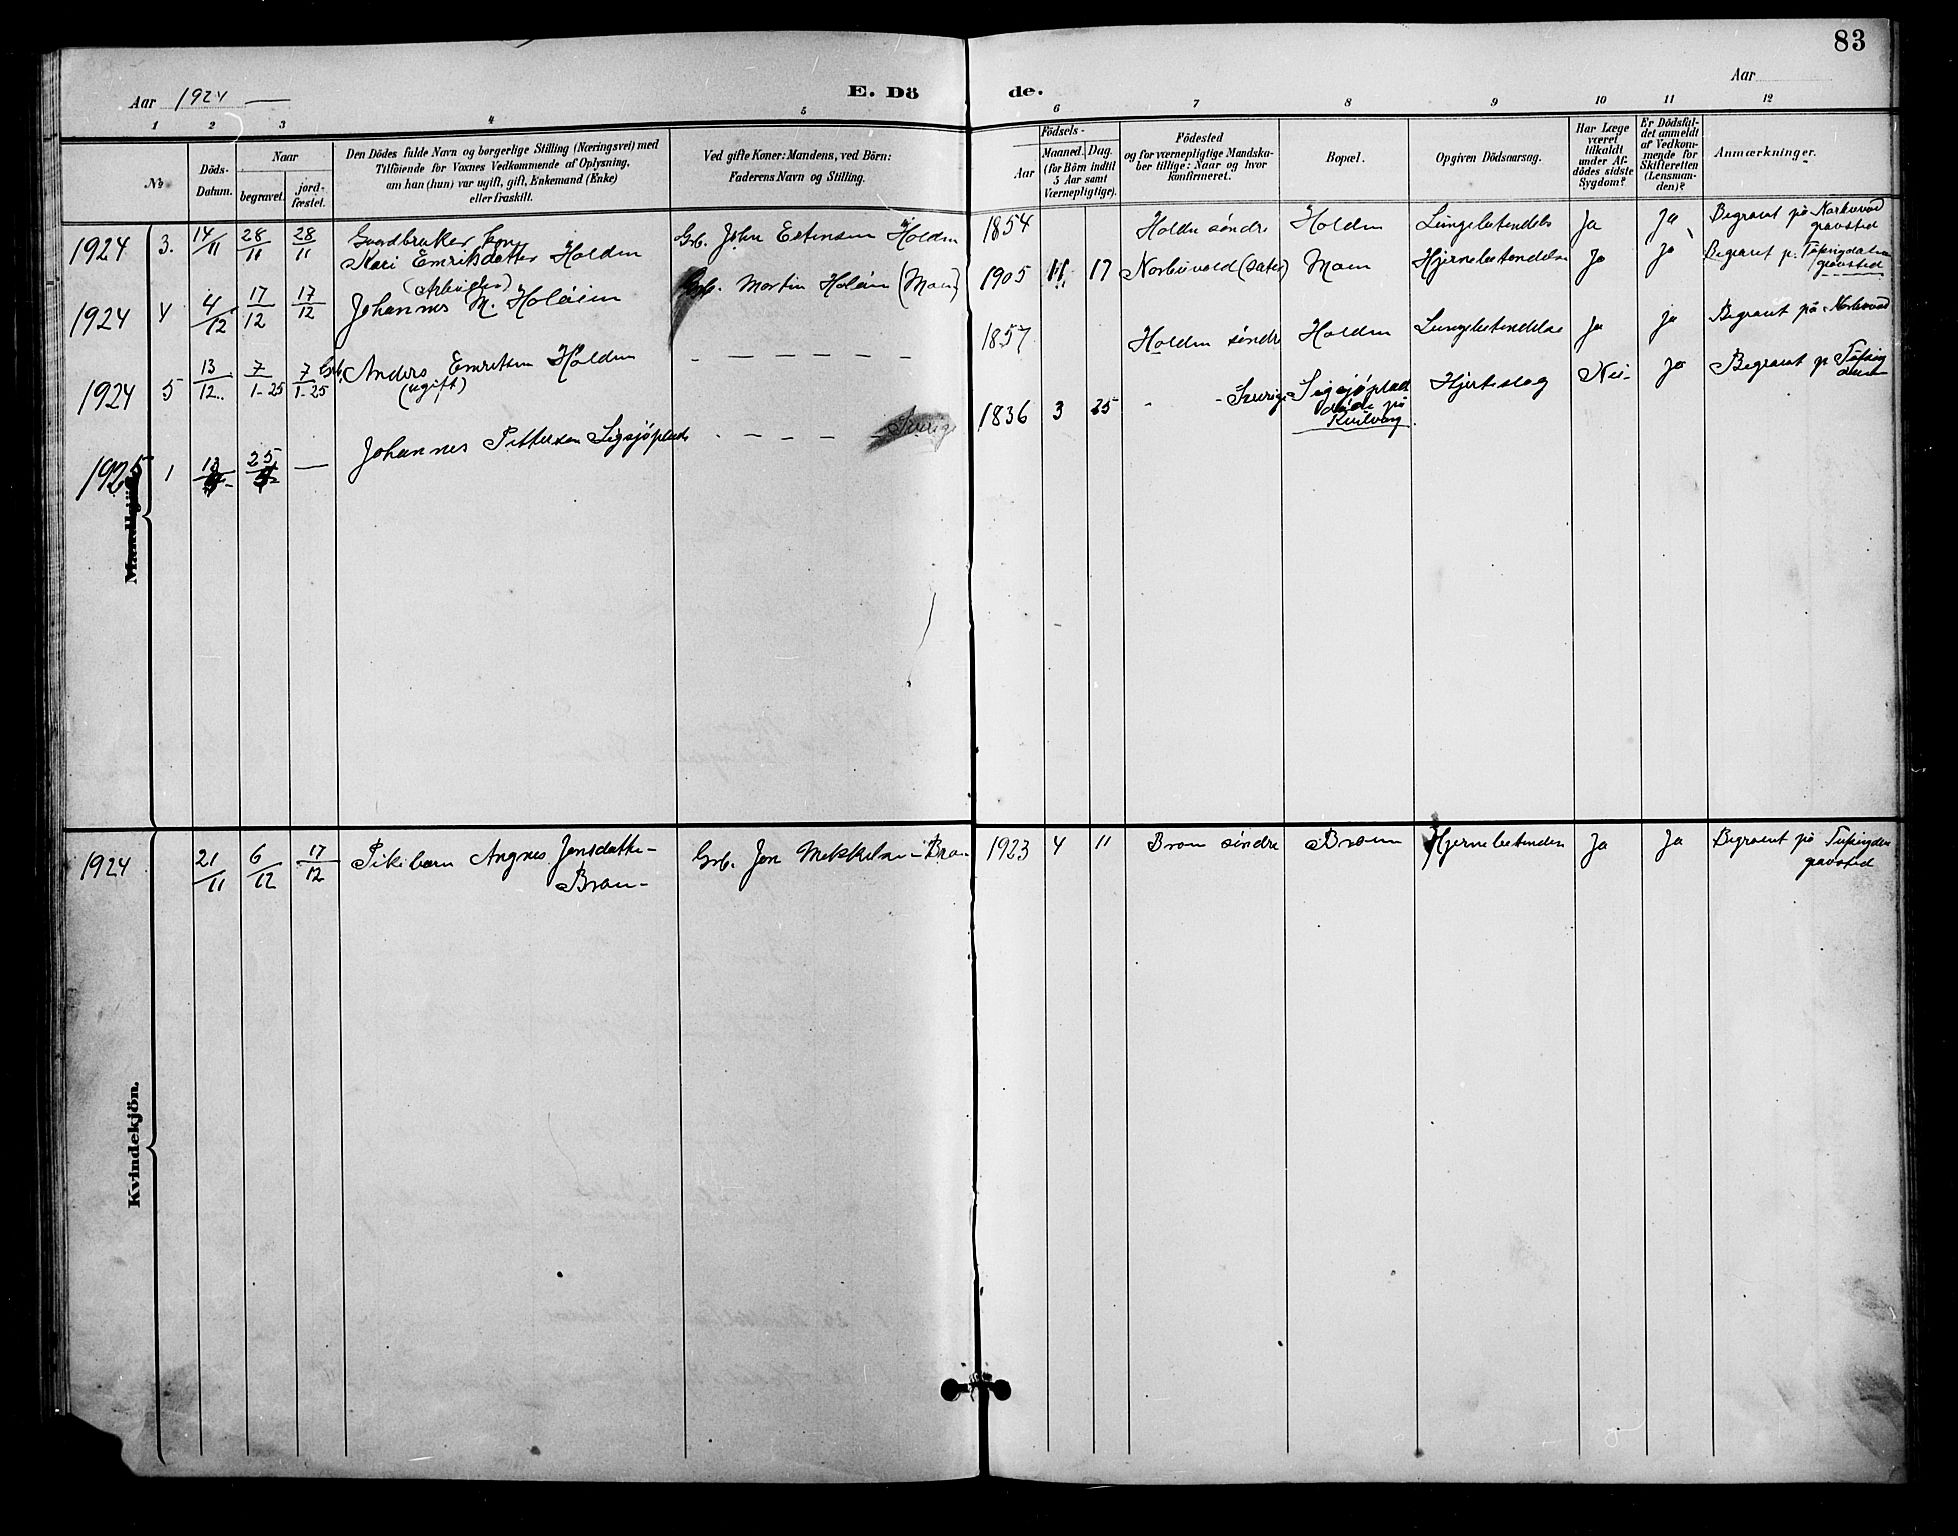 83
Aar 1924 —
E. Dö
de.
Aar
1 2 3 4 5
6 7 8 9 10 11 12
№
Döds-
Datum.
Naar
begravet.
jord-
fæstet.
Den Dödes fulde Navn og borgerlige Stilling (Næringsvei) med
Tilföiende for Voxnes Vedkommende af Oplysning,
om han (hun) var ugift, gift, Enkemand (Enke)
eller fraskilt.
Ved gifte Koner: Mandens, ved Börn:
Faderens Navn og Stilling.
Födsels-
Aar
Maaned.
Dag.
(for Börn indtil
5 Aar samt
Værnepligtige).
Födested
og for værnepligtige Mandska-
ber tillige: Naar og hvor
konfirmeret.
Bopæl.
Opgiven Dödsaarsag.
Har Læge
været
tilkaldt
under Af-
dödes sidste
Sygdom?
Er Dödsfal-
det anmeldt
af Vedkom-
mende for
Skifteretten
(Lensman-
den)?
Anmærkninger.
1924 3. 14/11 28/11 28/11 Gaardbruker kone
Kari Emriksdatter Holden
Grb. John Estensen Holden
1854 Holden söndre Holden Lungebetendels Ja Ja Begravet på Norbuvold
gravsted
1924 4 4/12 17/12 17/12 (Arbeider)
Johannes M. Holöien
Grb. Martin Holöien (Moen)
1905 11 17 Norbuvold (sater) Moen Hjernebetendelse Ja Ja Begravet p. Tufsingdalen
gravsted
1924 5 13/12 7/1-25 7/1-25 Grb. Anders Emriksen Holden
(ugift)
— — — — — —
1857 Holden söndre Holden Lungebetendelse Ja Ja Begravet på Norbuvold
1925 1 13 25 — Johannes Pettersen Sigsjöplads
- — — — — Sverige
1836 3 25 - - Sverige Sigsjöplads
döde på
Kvilvang.
Hjerteslag Nei- Ja Begravet p Tufsing
dalen
Mandkjön.
1924 21/11 6/12 17/12 Pikebarn Angnes Jonsdatter-
Broen-
Grb. Jon Mekkelsen-Broen
1923 4 11 Broen söndre Broenn Hjernebetenden Ja Ja Begravet på Tufsingdalen
gravsted
Kvindekjön.